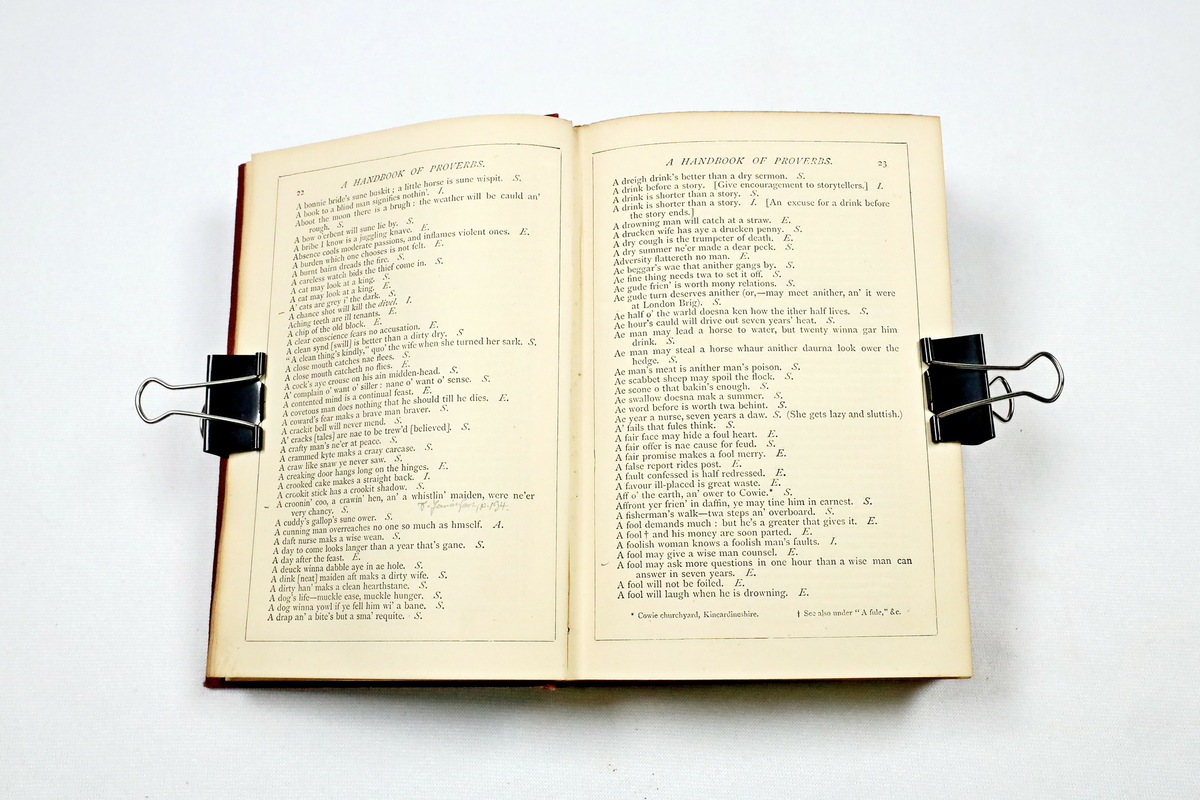 22
A HANDBOOK OF PROVERBS.
A bonnie bride's sune buskit; a little horse is sune wispit. S.
A book to a blind man signifies nothin'. I.
Aboot the moon there is a brugh: the weather will be cauld an'
rough. S.
A bow o'erbent will sune lie by. S.
A bribe I know is a juggling knave. E.
Absence cools moderate passions, and inflames violent ones. E.
A burden which one chooses is not felt. E.
A burnt bairn dreads the fire. S.
A careless watch bids the thief come in. S.
A cat may look at a king. S.
A cat may look at a king. E.
A' cats are grey i' the dark. S.
A chance shot will kill the divel. I.
Aching teeth are ill tenants. E.
A chip of the old block. E.
A clear conscience fears no accusation. E.
A clean synd [swill] is better than a dirty dry. S
"A clean thing's kindly," quo' the wife when she turned her sark. S.
A close mouth catches nae flees. S.
A close mouth catcheth no flies. E.
A cock's aye crouse on his ain midden-head. S.
A' complain o' want o' siller: nane o' want o' sense. S.
A contented mind is a continual feast. E.
A covetous man does nothing that he should till he dies. E.
A coward's fear may make a brave man braver. S.
A crackit bell will never mend. S.
A' cracks [tales] are nae to be trew'd [believed]. S.
A crafty man's ne'er at peace. S.
A crammed kyte makes a crazy carcase. S.
A craw like snaw ye never saw. S.
A creaking door hangs long on the hinges. E.
A crooked cake makes a straight back. I.
A crookit stick has a crookit shadow. S.
A croonin' coo, a crawin' hen, an' a whistlin' maiden, were ne'er
very chancy. S.
A cuddy's gallop's sune ower. S.
A cunning man overreaches no one so much as himself. A.
A daft nurse makes a wise wean. S.
A day to come looks langer than a year that's gane. S.
A day after the feast. E.
A deuck winna dabble aye in ae hole. S.
A dink [neat] maiden aft maks a dirty wife. S.
A dirty han' maks a clean hearthstane. S.
A dog's life—muckle ease, muckle hunger. S.
A dog winna yowl if ye fell him wi' a bane. S.
A drap an' a bite's but a sma' requite. S.
A HANDBOOK OF PROVERBS.
23
A dreigh drink's better than a dry sermon. S.
A drink before a story. [Give encouragement to storytellers.] I.
A drink is shorter than a story. S.
A drink is shorter than a story. I. [An excuse for a drink before
the story ends.]
A drowning man will catch at a straw. E.
A drucken wife has aye a drucken penny. S.
A dry cough is the trumpeter of death. E.
A dry summer ne'er made a dear peck. S.
Adversity flattereth no man. E.
Ae beggar's wae that anither gangs by. S.
Ae fine thing needs twa to set it off. S.
Ae gude frien' is worth mony relations. S.
Ae gude turn deserves anither (or,—may meet anither, an' it were
at London Brig). S.
Ae half o' the warld doesna ken how the ither half lives. S.
Ae hour's cauld will drive out seven years' heat. S.
Ae man may lead a horse to water, but twenty winna gar him
drink. S.
Ae man may steal a horse whaur anither daurna look ower the
hedge. S.
Ae man's meat is anither man's poison. S.
Ae scabbet sheep may spoil the flock. S.
Ae scone o that bakin's enough. S.
Ae swallow doesna mak a summer. S.
Ae word before is worth twa behint. S.
Ae year a nurse, seven years a daw. S. (She gets lazy and sluttish.)
A' fails that fules think. S.
A fair face may hide a foul heart. E.
A fair offer is nae cause for feud. S.
A fair promise makes a fool merry. E.
A false report rides post. E.
A fault confessed is half redressed. E.
A favour ill-placed is great waste. E.
Aff o' the earth, an' ower to Cowie.* S.
Affront yer frien' in daffin, ye may tine him in earnest. S.
A fisherman's walk—twa steps an' overboard. S.
A fool demands much: but he's a greater that gives it. E.
A fool † and his money are soon parted. E.
A foolish woman knows a foolish man's faults. I.
A fool may give a wise man counsel. E.
A fool may ask more questions in one hour than a wise man can
answer in seven years. E.
A fool will not be foiled. E.
A fool will laugh when he is drowning. E.
* Cowie churchyard, Kincardineshire. † See also under "A fule," &c.